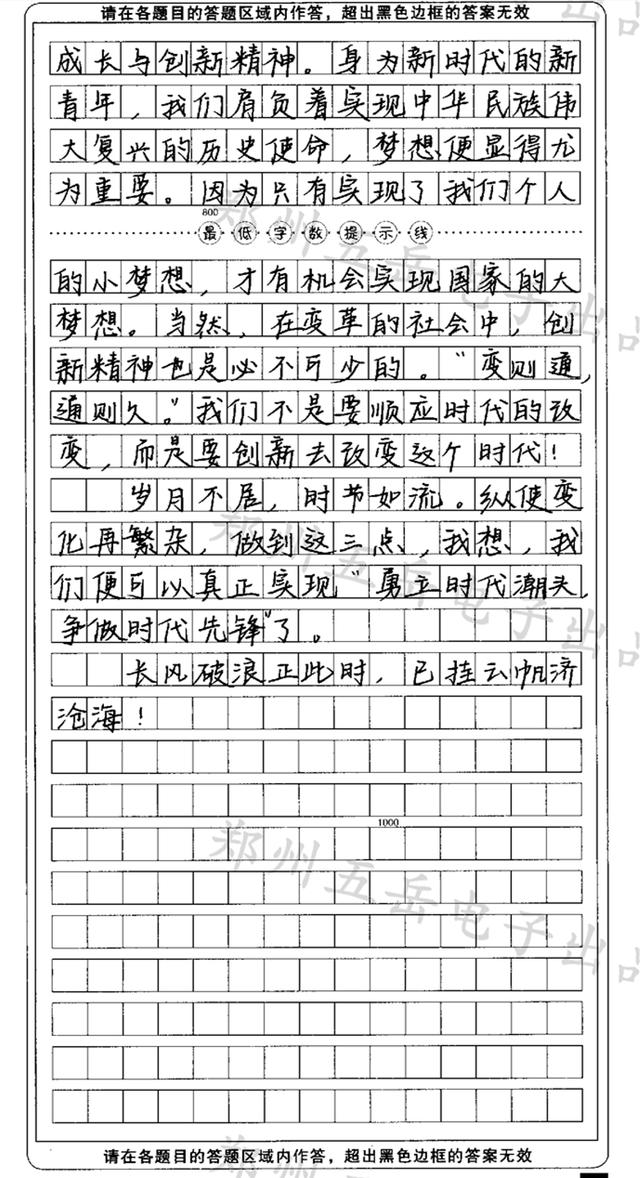 请在各题目的答题区域内作答，超出黑色边框的答案无效
成长与创新精神。身为新时代的新
青年，我们肩负着实现中华民族伟
大复兴的历史使命，梦想便显得尤
为重要。因为只有实现了我们个人
800
最低字数提示线
的小梦想，才有机会实现国家的大
梦想。当然，在变革的社会中，创
新精神也是必不可少的。“变则通，
通则久。”我们不是要顺应时代的改
变，而是要创新去改变这个时代！
岁月不居，时节如流。纵使变
化再繁杂，做到这三点，我想，我
们便可以真正实现“勇立时代潮头，
争做时代先锋”了。
长风破浪正此时，已挂云帆济
沧海！
1000
郑州五岳电子出品
郑州五岳电子出品
郑州五岳电子出品
请在各题目的答题区域内作答，超出黑色边框的答案无效